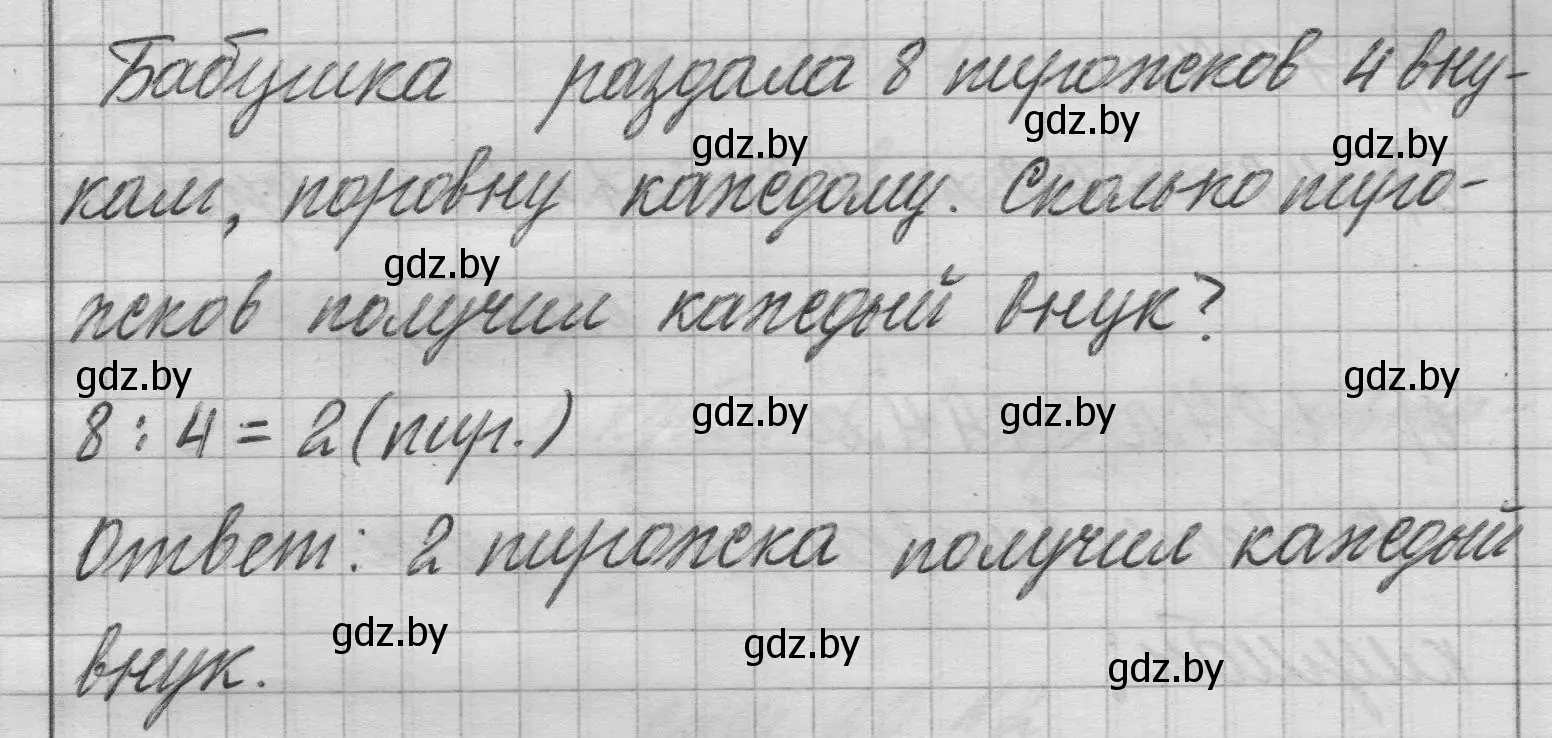 Бабушка раздала 8 пирожков 4 вну-
gdz.by gdz.by gdz.by
кам, поровну каждому. Сколько пиро-
gdz.by
жков получил каждый внук?
gdz.by gdz.by gdz.by gdz.by
8 : 4 = 2 (пир.)
Ответ: 2 пирожка получил каждый
gdz.by gdz.by gdz.by
внук.